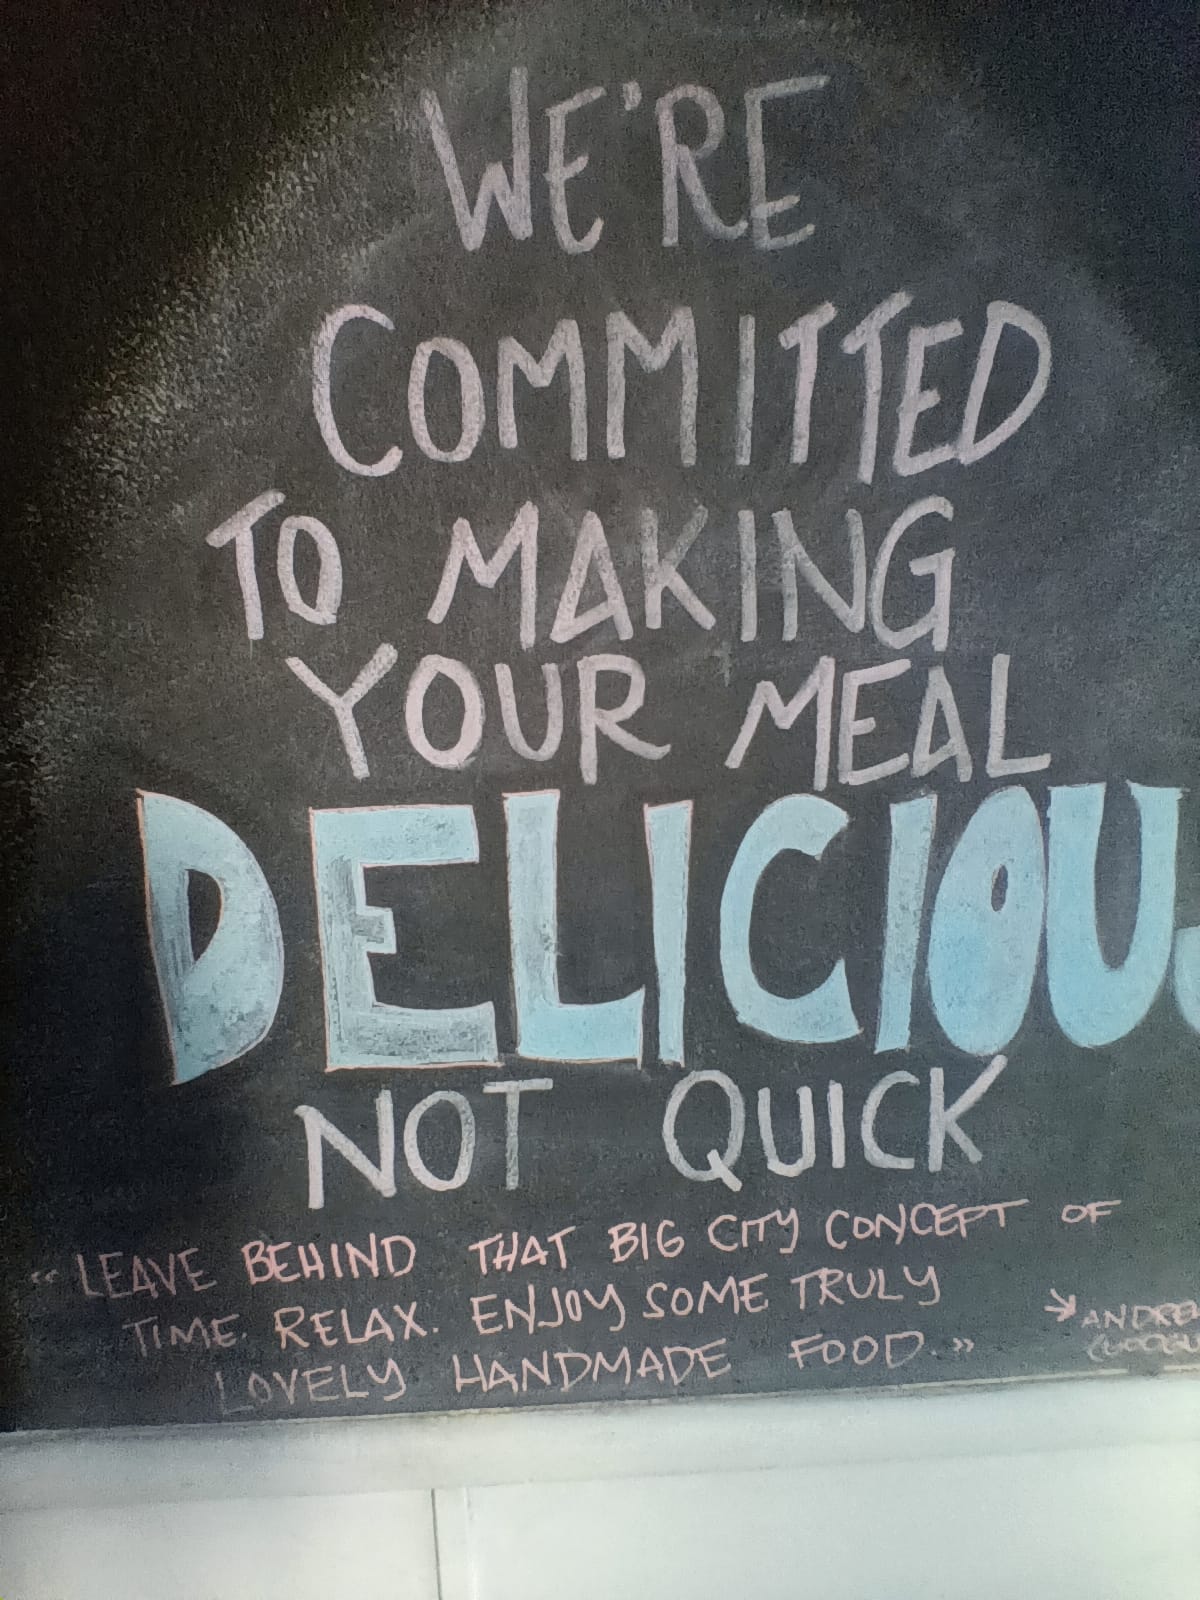 WE'RE
COMMITTED
TO MAKING
YOUR MEAL
DELICIOU
NOT QUICK
"LEAVE BEHIND THAT BIG CITY CONCEPT OF
TIME. RELAX. ENJOY SOME TRULY
LOVELY HANDMADE FOOD."
ANDRE